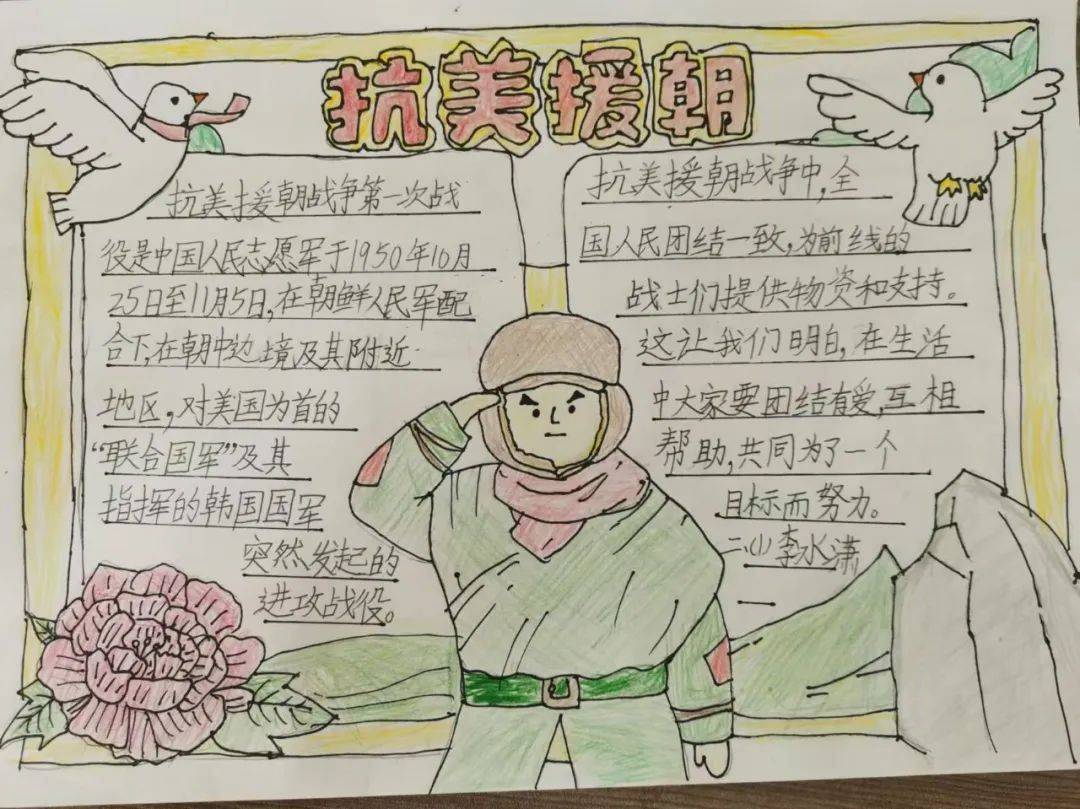 抗美援朝
抗美援朝战争第一次战
役是中国人民志愿军于1950年10月
25日至11月5日,在朝鲜人民军配
合下,在朝中边境及其附近
地区,对美国为首的
“联合国军”及其
指挥的韩国国军
突然发起的
进攻战役。
抗美援朝战争中,全
国人民团结一致,为前线的
战士们提供物资和支持。
这让我们明白,在生活
中大家要团结有爱,互相
帮助,共同为了一个
目标而努力。
二、(1) 李水潇